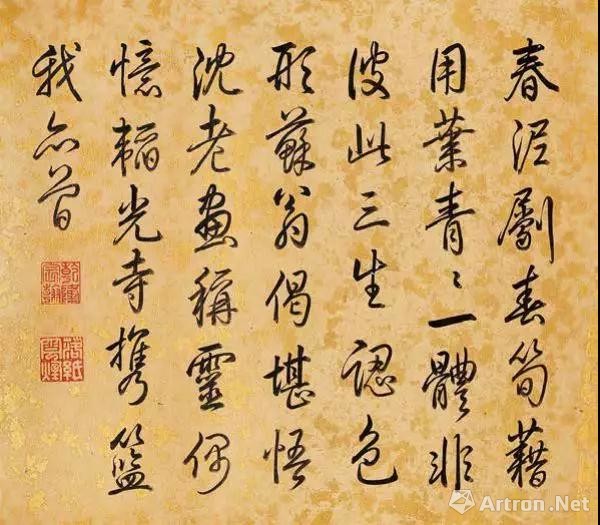 春泥劚春筍藉
用葉青〻一體非
彼此三生認色
形蘇翁偈堪悟
沈老畫稱靈偶
憶韜光寺攜籃
我亦曾
乾隆宸翰
Artron.Net